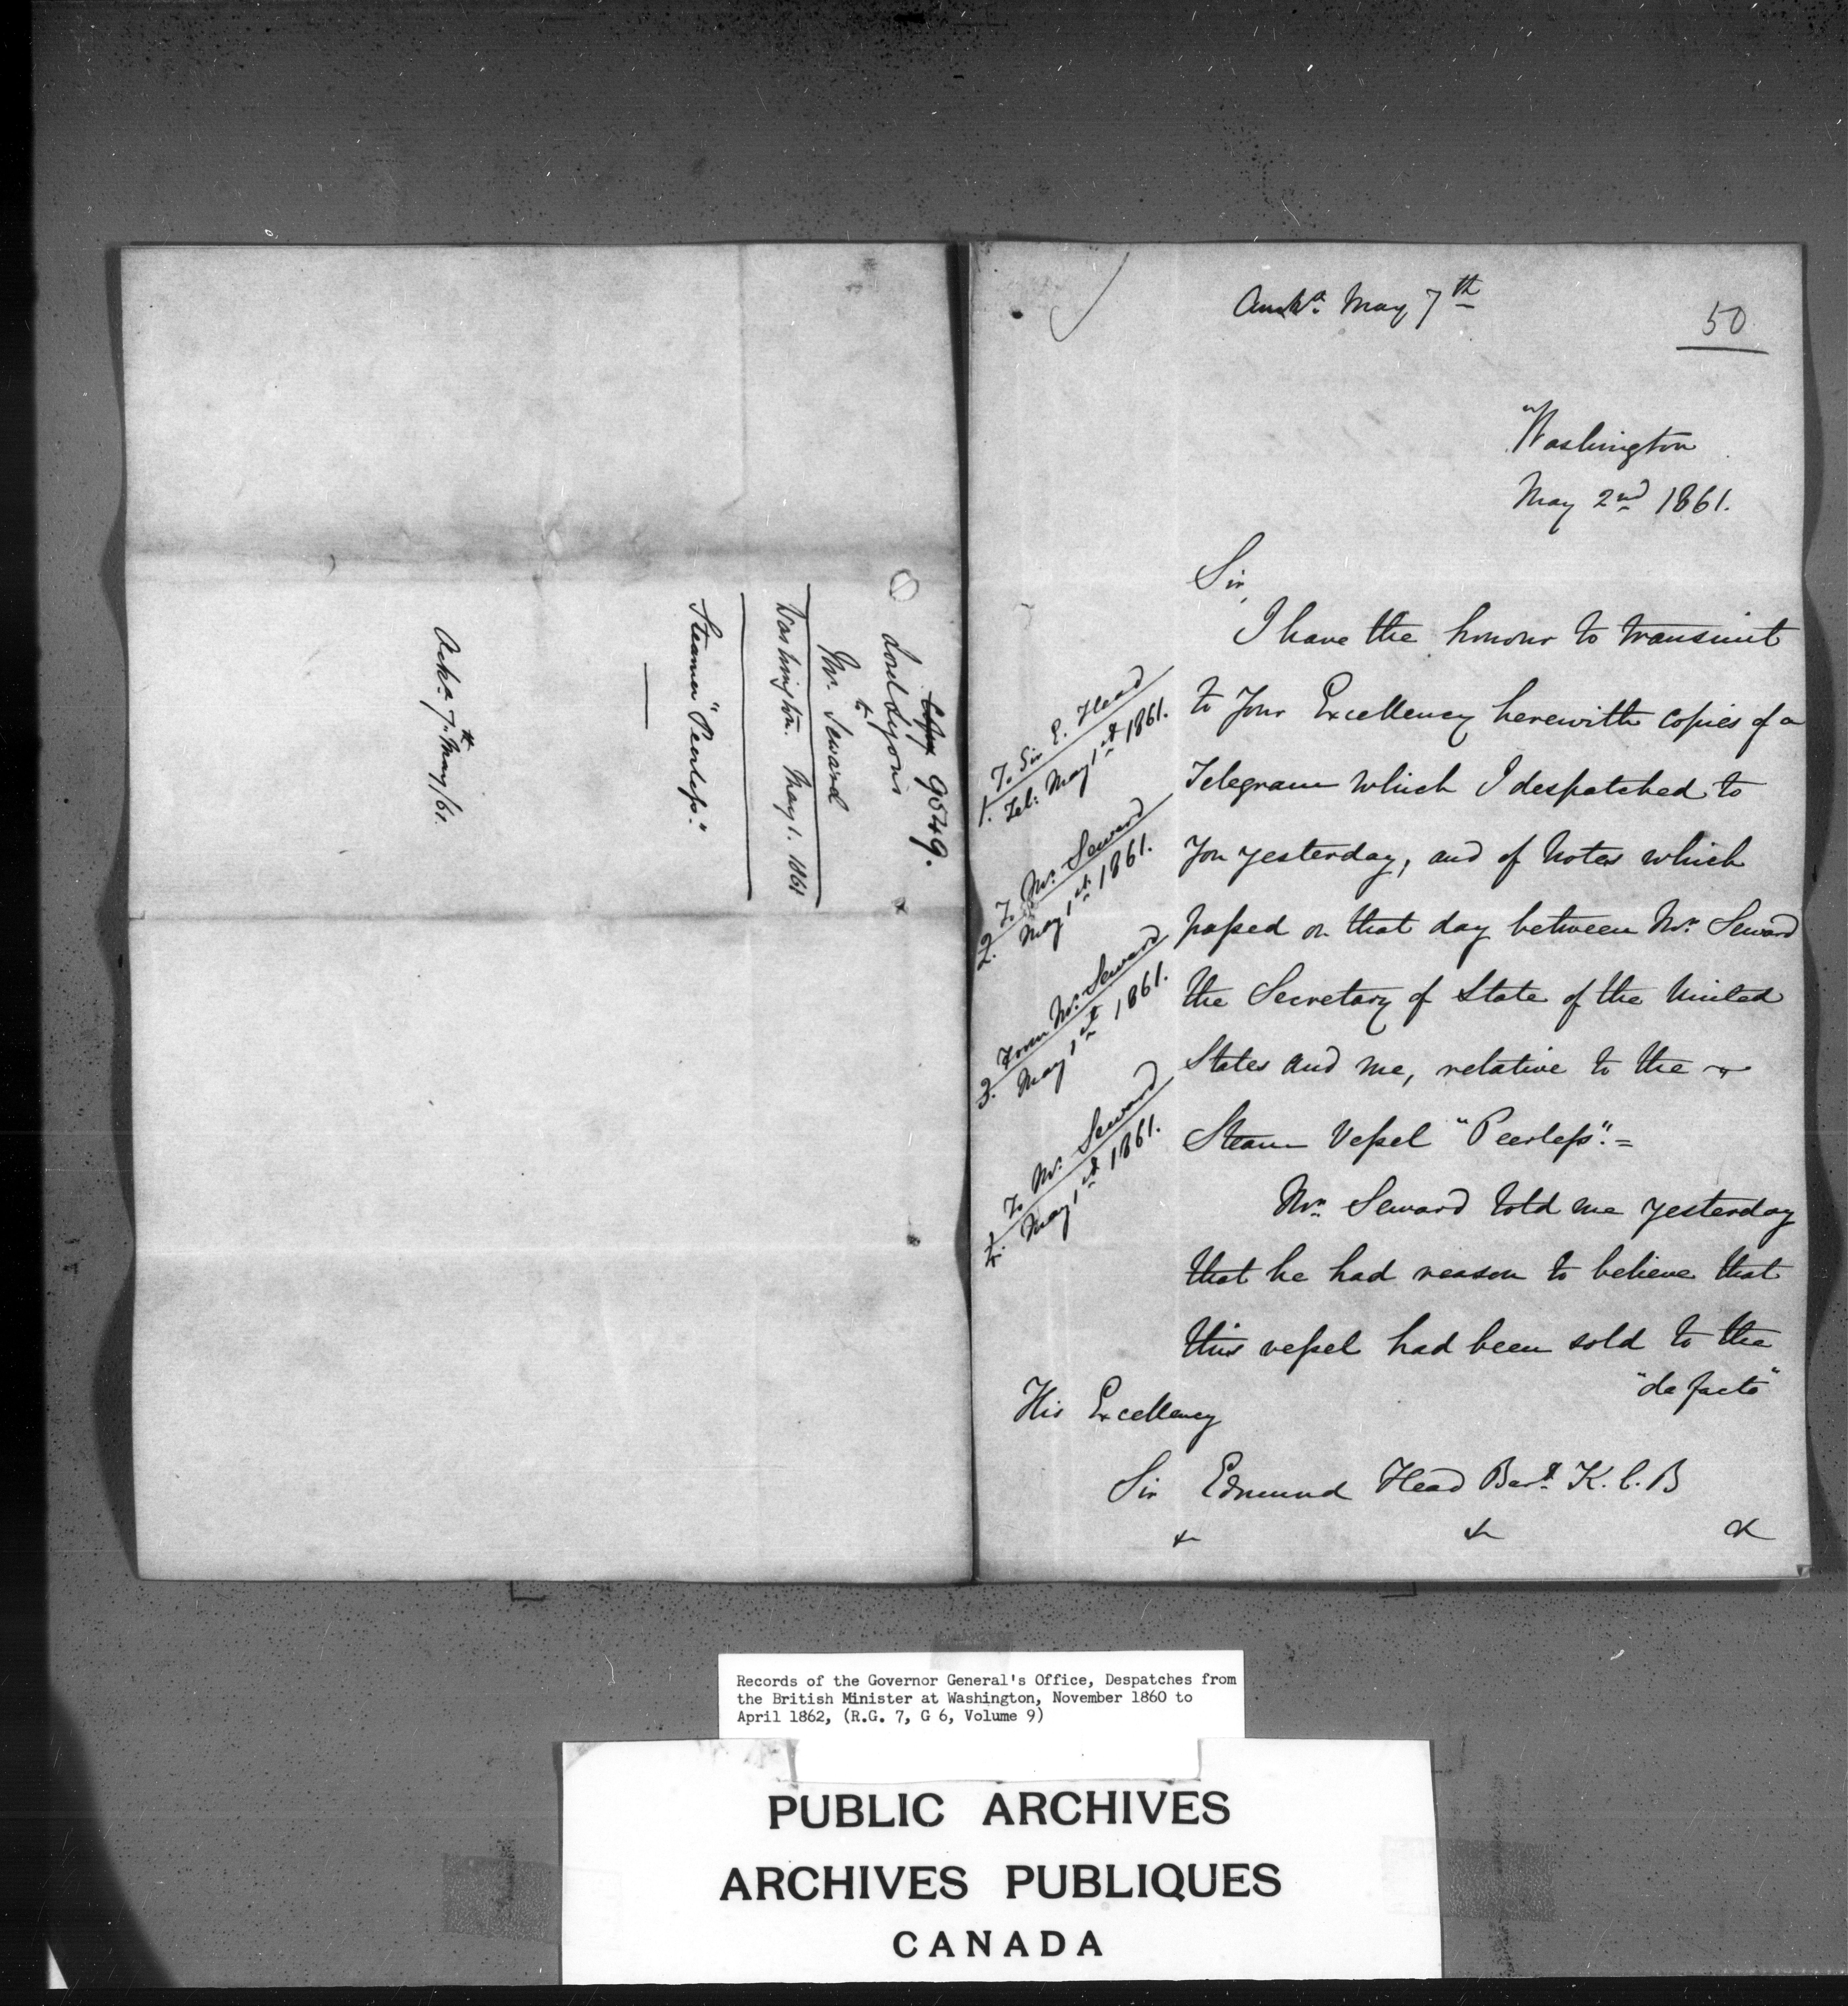 Copy 9549.
Lord Lyons
to
Mr. Seward
Washington. May 1. 1861
Steamer "Peerless."
Ackd. 7th May/61.
Answd. May 7th
50
Washington
May 2nd 1861.
Sir,
I have the honour to transmit
to Your Excellency herewith copies of a
Telegram which I despatched to
you yesterday, and of Notes which
passed on that day between Mr. Seward
the Secretary of State of the United
States and me, relative to the
Steam Vessel "Peerless". =
Mr. Seward told me yesterday
that he had reason to believe that
this vessel had been sold to the
"de facto"
His Excellency
Sir Edmund Head Bart. K.C.B
& & &
1. To Sir E. Head
Tel: May 1st 1861.
2. To Mr. Seward
May 1st 1861.
3. From Mr. Seward
May 1st 1861.
4. To Mr. Seward
May 1st 1861.
Records of the Governor General's Office, Despatches from
the British Minister at Washington, November 1860 to
April 1862, (R.G. 7, G 6, Volume 9)
PUBLIC ARCHIVES
ARCHIVES PUBLIQUES
CANADA